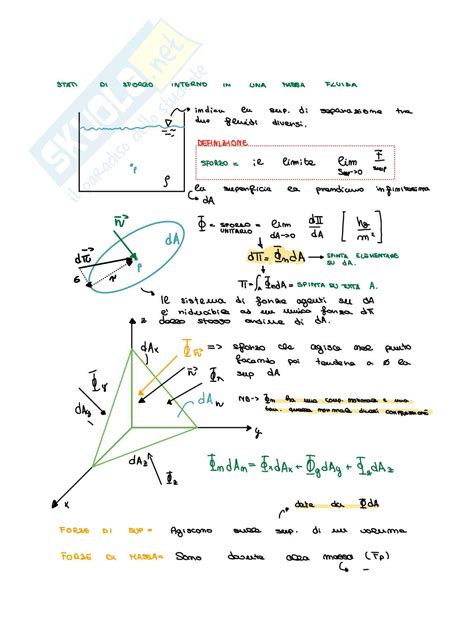 STATI DI SFORZO INTERNO IN UNA MASSA FLUIDA
SKUOLA.net
indica la sup. di separazione tra
due fluidi diversi.
DEFINIZIONE
SFORZO = il limite lim Sup→0 F/sup
P
ρ
la superficie la prendiamo infinitesima
dA
Φ = SFORZO UNITARIO = lim dA→0 dΠ/dA [kg/m²]
n
dA
dΠ
P
r
dΠ = Φn dA → SPINTA ELEMENTARE
SU dA.
Π = ∫A Φn dA = SPINTA SU TUTTA A.
le sistema di forze agenti su dA
è riducibile ad un unica forza dΠ
dello stesso ordine di dA.
z
dAx
Φn => sforzo che agisce nel punto
facendo poi tendere a 0 la
sup dA
n
Φn
dAn
Φy
dAy
NB-> Φn ha una comp. normale e una
tan. quella normale dicesi compressione
y
dAz
Φz
x
Φn dAn = Φx dAx + Φy dAy + Φz dAz
date da ΦdA
FORZE DI SUP = Agiscono sulla sup. di un volume
FORZE DI MASSA = Sono dovute alla massa (Fp)